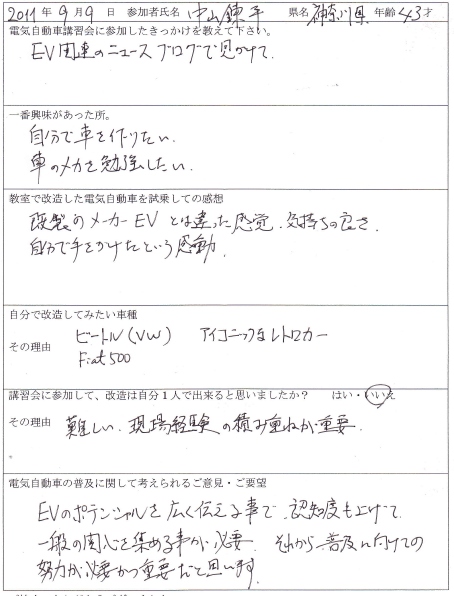 2011 年 9 月 9 日 参加者氏名 中山 錬平 県名 神奈川県 年齢 43 才
電気自動車講習会に参加したきっかけを教えて下さい。
EV関連のニュースブログで見かけて.
一番興味があった所。
自分で車を作りたい.
車のメカを勉強したい.
教室で改造した電気自動車を試乗しての感想
既製のメーカーEVとは違った感覚.気持ちの良さ.
自分で手をかけたという感動.
自分で改造してみたい車種
その理由 ビートル(VW) アイコニックなレトロカー
Fiat500
講習会に参加して、改造は自分1人で出来ると思いましたか? はい・いいえ
その理由 難しい.現場経験の積み重ねが重要.
電気自動車の普及に関して考えられるご意見・ご要望
EVのポテンシャルを広く伝える事で.認知度も上げて
一般の関心を集める事が必要. それから普及に向けての
努力が必要かつ重要だと思います.